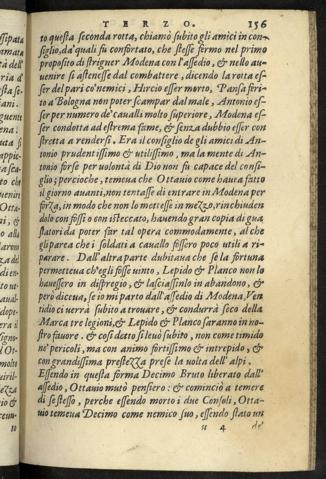 TERZO. 156
to questa seconda rotta, chiamò subito gli amici in con-
siglio, da' quali fu confortato, che stesse fermo nel primo
proposito di strigner Modena con l'assedio, & nello au-
uenire si astenesse dal combattere, dicendo la rotta es-
ser del pari co'nemici, Hircio esser morto, Pansa feri-
to a Bologna non poter scampar dal male, Antonio es-
ser per numero de' caualli molto superiore, Modena es-
ser condotta ad estrema fame, & senza dubbio esser con
stretta a rendersi. Era il consiglio de gli amici di An-
tonio prudentissimo & utilissimo, ma la mente di An-
tonio forse per uolontà di Dio non fu capace del consi-
glio; percioche, temeua che Ottauio come hauea fatto
il giorno auanti, non tentasse di entrare in Modena per
forza, in modo che non lo mettesse in mezzo, rinchiuden
dolo con fossi o con isteccato, hauendo gran copia di gua
statori da poter far tal opera commodamente, al che
gli parea che i soldati a cauallo fossero poco utili a ri-
parare. Dall'altra parte dubitaua che se la fortuna
permetteua ch'egli fosse uinto, Lepido & Planco non lo
hauessero in dispregio, & lasciassinlo in abandono, &
però diceua, se io mi parto dall'assedio di Modena, Ven
tidio ci uerrà subito a trouare, & condurrà seco della
Marca tre legioni, & Lepido & Planco saranno in no-
stro fauore. & così detto si leuò subito, non come timido
ne' pericoli, ma con animo fortissimo & intrepido, &
con grandissima prestezza prese la uolta dell'alpi.
Essendo in questa forma Decimo Bruto liberato dall'
assedio, Ottauio mutò pensiero: & cominciò a temere
di se stesso, perche essendo morto i due Consoli, Otta-
uio temeua Decimo come nemico suo, essendo stato un
u 4 de'